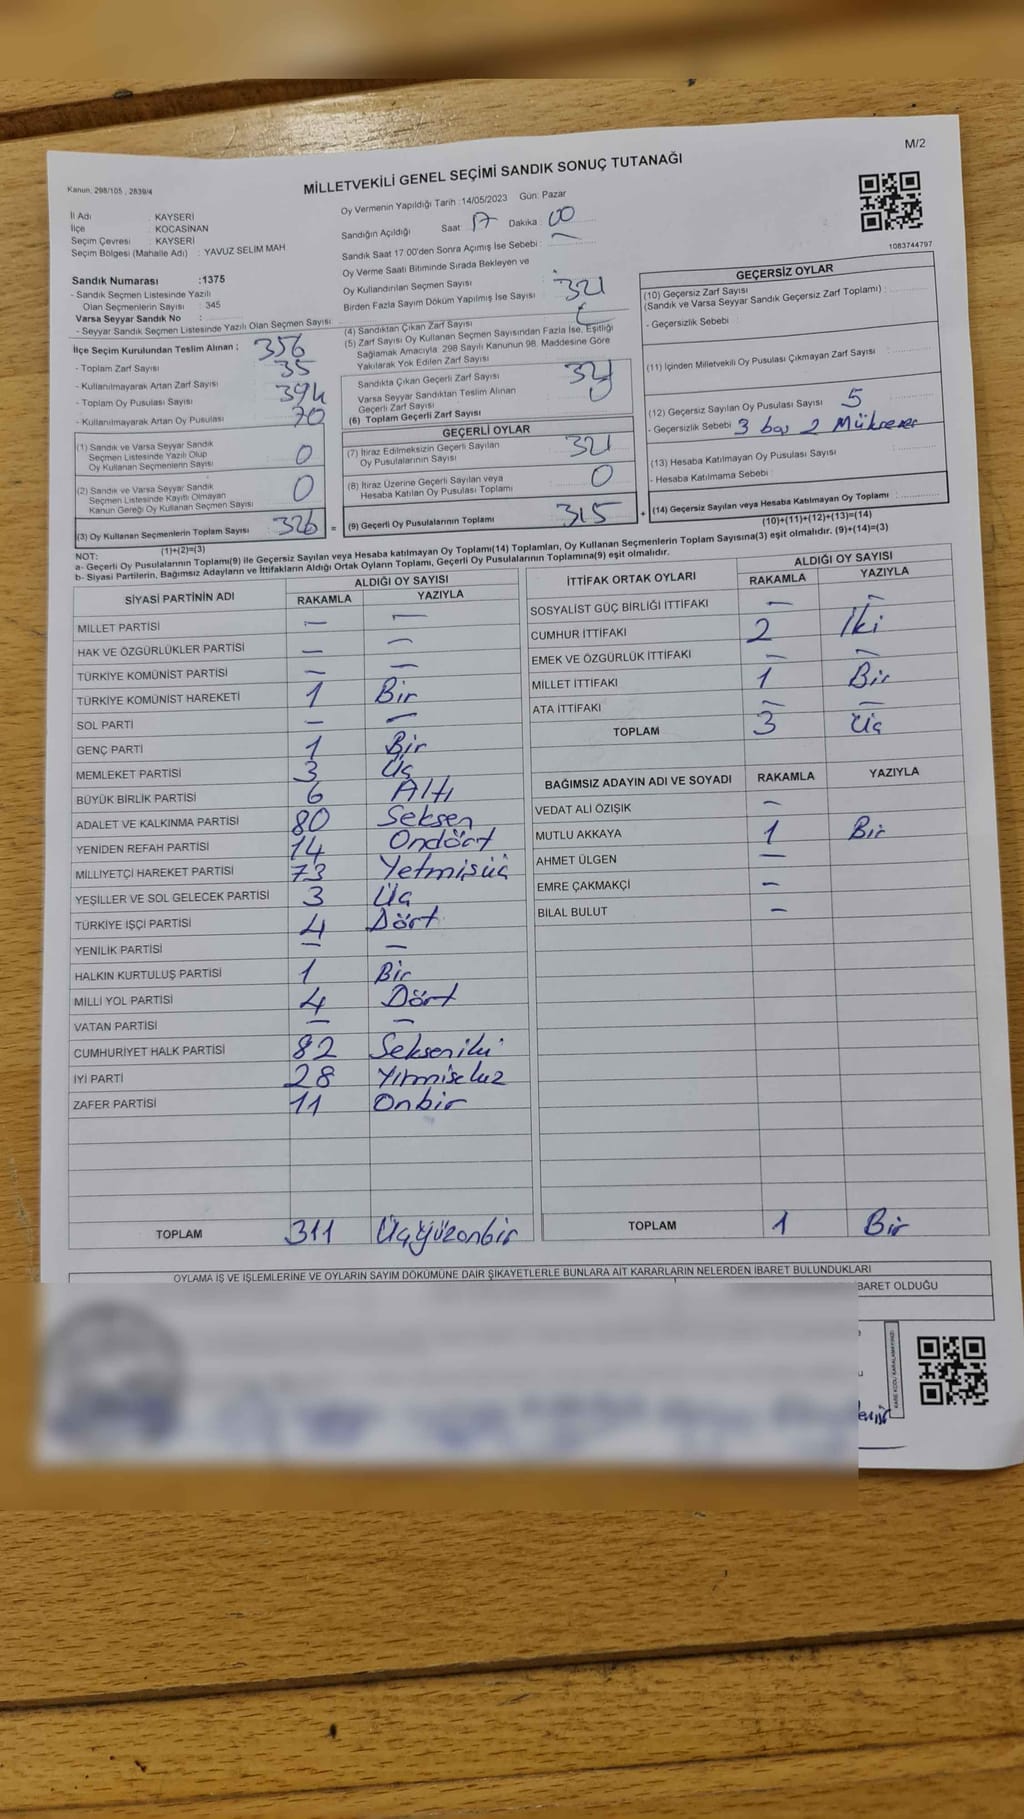 M/2
Kanun, 298/105 , 2839/4
MİLLETVEKİLİ GENEL SEÇİMİ SANDIK SONUÇ TUTANAĞI
İl Adı : KAYSERİ
İlçe : KOCASİNAN
Seçim Çevresi : KAYSERİ
Seçim Bölgesi (Mahalle Adı) : YAVUZ SELİM MAH
Oy Vermenin Yapıldığı Tarih :14/05/2023 Gün: Pazar
Sandığın Açıldığı Saat : 17 Dakika : 00
Sandık Saat 17 00'den Sonra Açımış İse Sebebi : —
Oy Verme Saati Bitiminde Sırada Bekleyen ve
Oy Kullandırılan Seçmen Sayısı
Birden Fazla Sayım Döküm Yapılmış İse Sayısı
1083744797
Sandık Numarası :1375
- Sandık Seçmen Listesinde Yazılı
Olan Seçmenlerin Sayısı : 345
Varsa Seyyar Sandık No :
- Seyyar Sandık Seçmen Listesinde Yazılı Olan Seçmen Sayısı
İlçe Seçim Kurulundan Teslim Alınan ;
- Toplam Zarf Sayısı 356
- Kullanılmayarak Artan Zarf Sayısı 35
- Toplam Oy Pusulası Sayısı 394
- Kullanılmayarak Artan Oy Pusulası 70
(1) Sandık ve Varsa Seyyar Sandık
Seçmen Listesinde Yazılı Olup
Oy Kullanan Seçmenlerin Sayısı 0
(2) Sandık ve Varsa Seyyar Sandık
Seçmen Listesinde Kayıtlı Olmayan
Kanun Gereği Oy Kullanan Seçmen Sayısı 0
(3) Oy Kullanan Seçmenlerin Toplam Sayısı 326
(1)+(2)=(3)
(4) Sandıktan Çıkan Zarf Sayısı 321
(5) Zarf Sayısı Oy Kullanan Seçmen Sayısından Fazla İse, Eşitliği
Sağlamak Amacıyla 298 Sayılı Kanunun 98. Maddesine Göre
Yakılarak Yok Edilen Zarf Sayısı
Sandıkta Çıkan Geçerli Zarf Sayısı 321
Varsa Seyyar Sandıktan Teslim Alınan
Geçerli Zarf Sayısı 0
(6) Toplam Geçerli Zarf Sayısı
GEÇERLİ OYLAR
(7) İtiraz Edilmeksizin Geçerli Sayılan
Oy Pusulalarının Sayısı 321
(8) İtiraz Üzerine Geçerli Sayılan veya
Hesaba Katılan Oy Pusulası Toplamı 0
= (9) Geçerli Oy Pusulalarının Toplamı 315
GEÇERSİZ OYLAR
(10) Geçersiz Zarf Sayısı
(Sandık ve Varsa Seyyar Sandık Geçersiz Zarf Toplamı) :
- Geçersizlik Sebebi
(11) İçinden Milletvekili Oy Pusulası Çıkmayan Zarf Sayısı
(12) Geçersiz Sayılan Oy Pusulası Sayısı 5
- Geçersizlik Sebebi 3 boş 2 Mükrerer
(13) Hesaba Katılmayan Oy Pusulası Sayısı
- Hesaba Katılmama Sebebi
+ (14) Geçersiz Sayılan veya Hesaba Katılmayan Oy Toplamı :
(10)+(11)+(12)+(13)=(14)
NOT:
a- Geçerli Oy Pusulalarının Toplamı(9) ile Geçersiz Sayılan veya Hesaba katılmayan Oy Toplamı(14) Toplamları, Oy Kullanan Seçmenlerin Toplam Sayısına(3) eşit olmalıdır. (9)+(14)=(3)
b- Siyasi Partilerin, Bağımsız Adayların ve İttifakların Aldığı Ortak Oyların Toplamı, Geçerli Oy Pusulalarının Toplamına(9) eşit olmalıdır.
SİYASİ PARTİNİN ADI ALDIĞI OY SAYISI
RAKAMLA YAZIYLA
MİLLET PARTİSİ — —
HAK VE ÖZGÜRLÜKLER PARTİSİ — —
TÜRKİYE KOMÜNİST PARTİSİ — —
TÜRKİYE KOMÜNİST HAREKETİ 1 Bir
SOL PARTİ — —
GENÇ PARTİ 1 Bir
MEMLEKET PARTİSİ 3 Üç
BÜYÜK BİRLİK PARTİSİ 6 Altı
ADALET VE KALKINMA PARTİSİ 80 Seksen
YENİDEN REFAH PARTİSİ 14 Ondört
MİLLİYETÇİ HAREKET PARTİSİ 73 Yetmişüç
YEŞİLLER VE SOL GELECEK PARTİSİ 3 Üç
TÜRKİYE İŞÇİ PARTİSİ 4 Dört
YENİLİK PARTİSİ — —
HALKIN KURTULUŞ PARTİSİ 1 Bir
MİLLİ YOL PARTİSİ 4 Dört
VATAN PARTİSİ — —
CUMHURİYET HALK PARTİSİ 82 Sekseniki
İYİ PARTİ 28 Yirmisekiz
ZAFER PARTİSİ 11 Onbir
TOPLAM 311 Üçyüzonbir
İTTİFAK ORTAK OYLARI ALDIĞI OY SAYISI
RAKAMLA YAZIYLA
SOSYALİST GÜÇ BİRLİĞİ İTTİFAKI — —
CUMHUR İTTİFAKI 2 İki
EMEK VE ÖZGÜRLÜK İTTİFAKI — —
MİLLET İTTİFAKI 1 Bir
ATA İTTİFAKI — —
TOPLAM 3 Üç
BAĞIMSIZ ADAYIN ADI VE SOYADI RAKAMLA YAZIYLA
VEDAT ALİ ÖZIŞIK —
MUTLU AKKAYA 1 Bir
AHMET ÜLGEN —
EMRE ÇAKMAKÇİ —
BİLAL BULUT —
TOPLAM 1 Bir
OYLAMA İŞ VE İŞLEMLERİNE VE OYLARIN SAYIM DÖKÜMÜNE DAİR ŞİKAYETLERLE BUNLARA AİT KARARLARIN NELERDEN İBARET BULUNDUKLARI
BARET OLDUĞU
KARE KODU KARALAMAYINIZ!